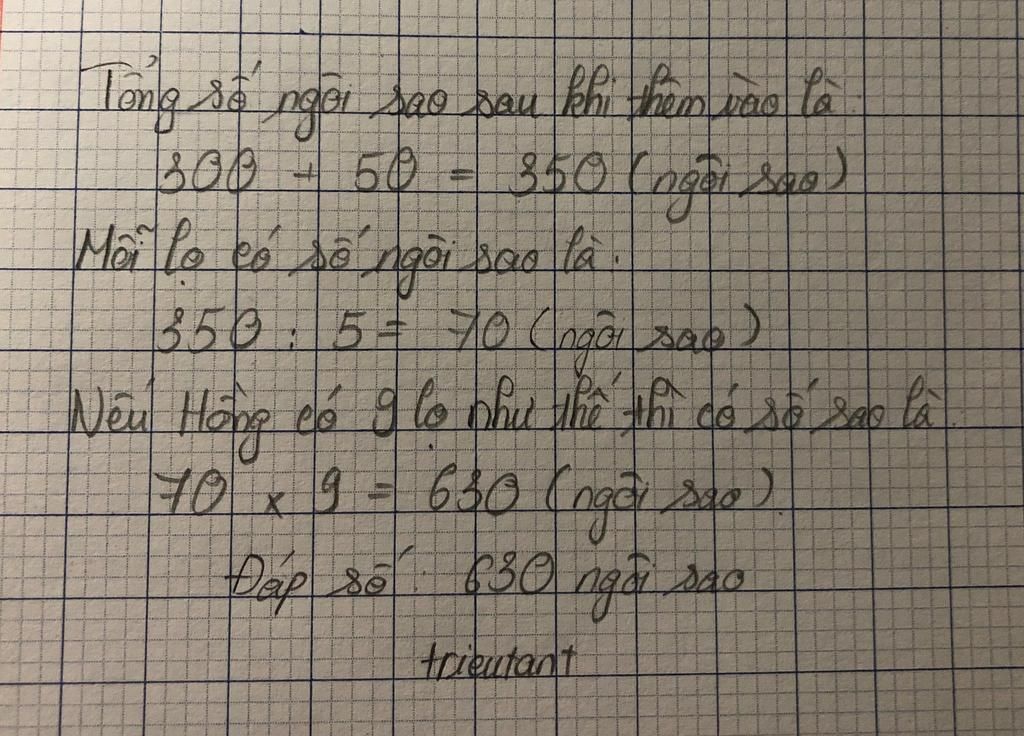 Tổng số ngôi sao sau khi thêm vào là:
300 + 50 = 350 (ngôi sao)
Mỗi lọ có số ngôi sao là:
350 : 5 = 70 (ngôi sao)
Nếu Hồng có 9 lọ như thế thì có số sao là:
70 x 9 = 630 (ngôi sao).
Đáp số: 630 ngôi sao
trieutant